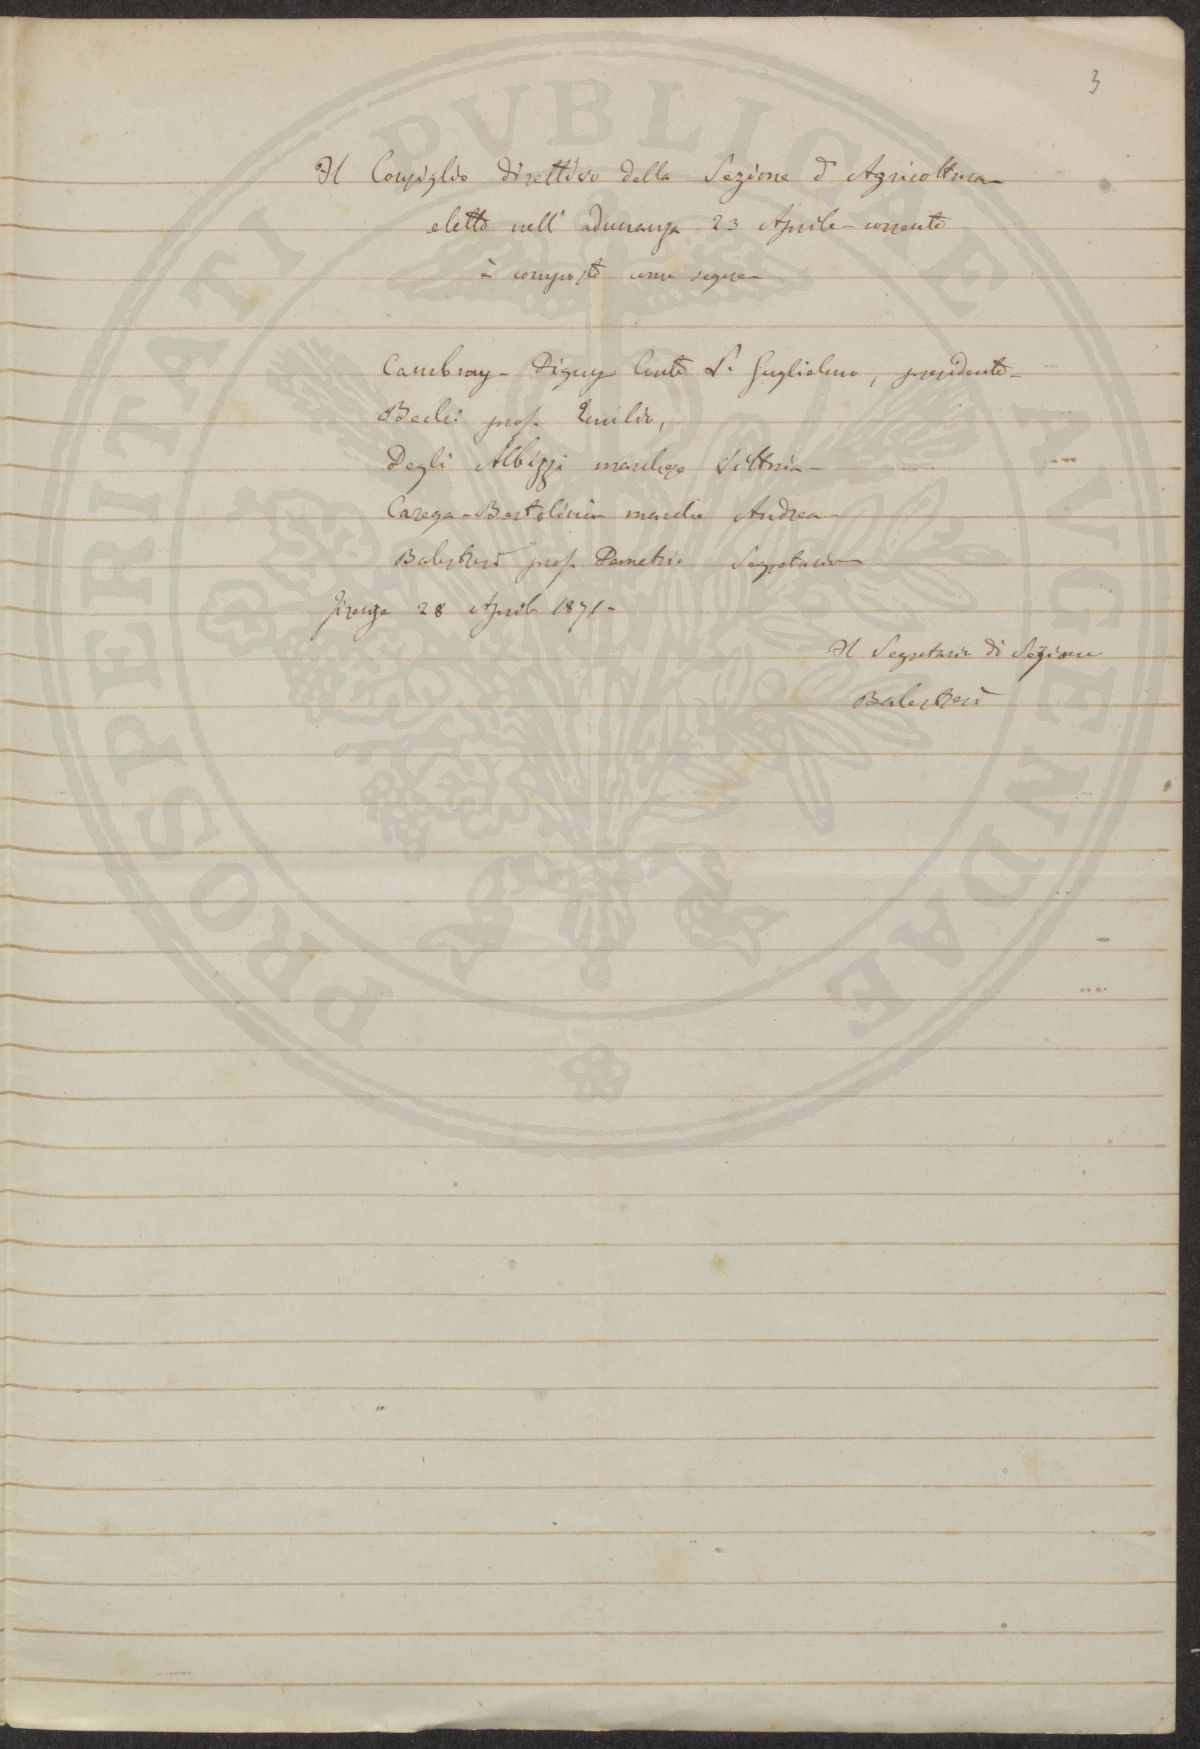 3
Il Consiglio direttivo della Sezione d'Agricoltura
eletto nell'adunanza 23 Aprile corrente
è composto come segue
Cambray-Digny Conte S. Guglielmo, presidente
Bechi prof. Emilio,
Degli Albizzi marchese Vittorio
Carega-Bertolini marche Andrea
Balestreri prof. Demetrio Segretario
Firenze 28 Aprile 1871
Il Segretario di Sezione
Balestreri
PROSPERITATI PVBLICAE AVGENDAE